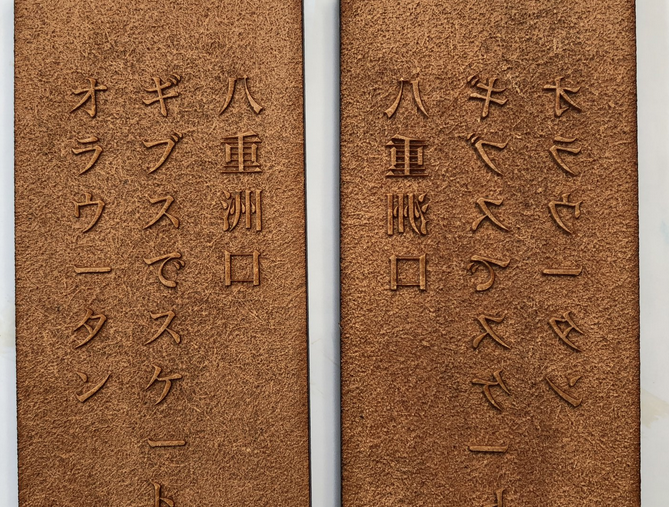 八重洲口
ギブスでスケート
オラウータン
八重洲口
ギブスでスケート
オラウータン